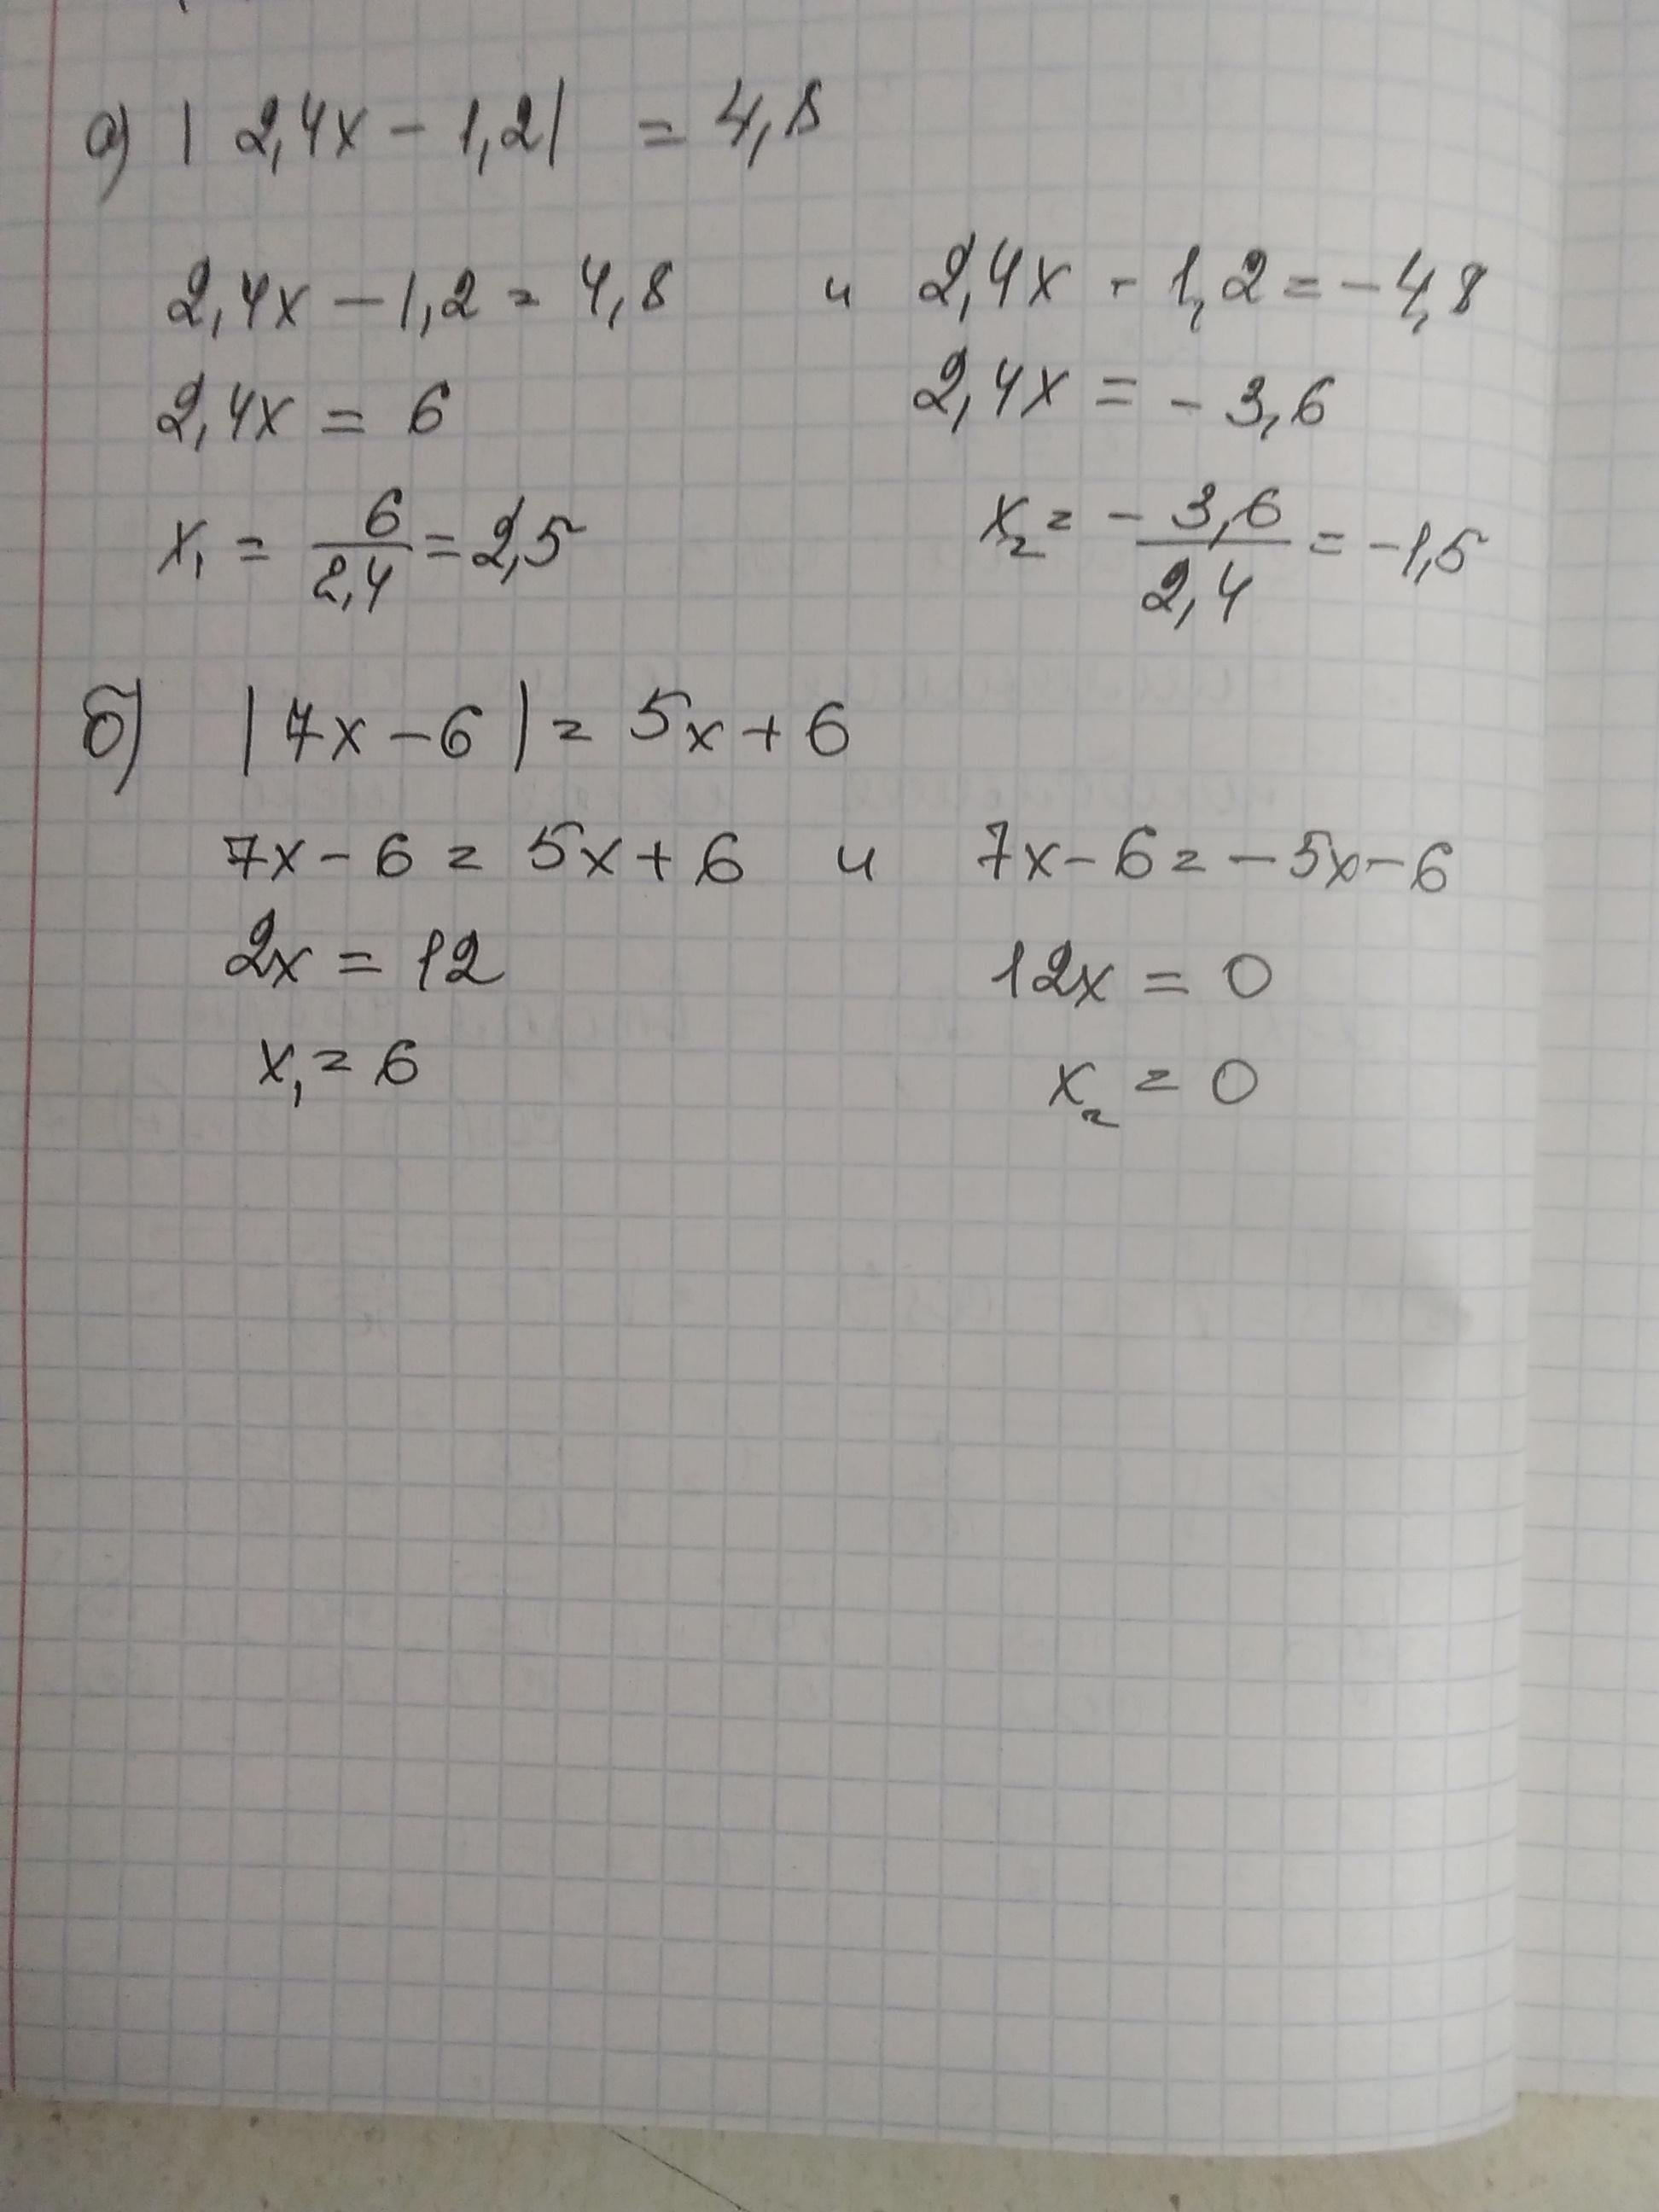 а) | 2,4x - 1,2| = 4,8
2,4x - 1,2 = 4,8 и 2,4x - 1,2 = -4,8
2,4x = 6 2,4x = - 3,6
x₁ = 6/2,4 = 2,5 x₂ = - 3,6/2,4 = -1,5
б) |7x - 6| = 5x + 6
7x - 6 = 5x + 6 и 7x - 6 = - 5x - 6
2x = 12 12x = 0
x₁ = 6 x₂ = 0